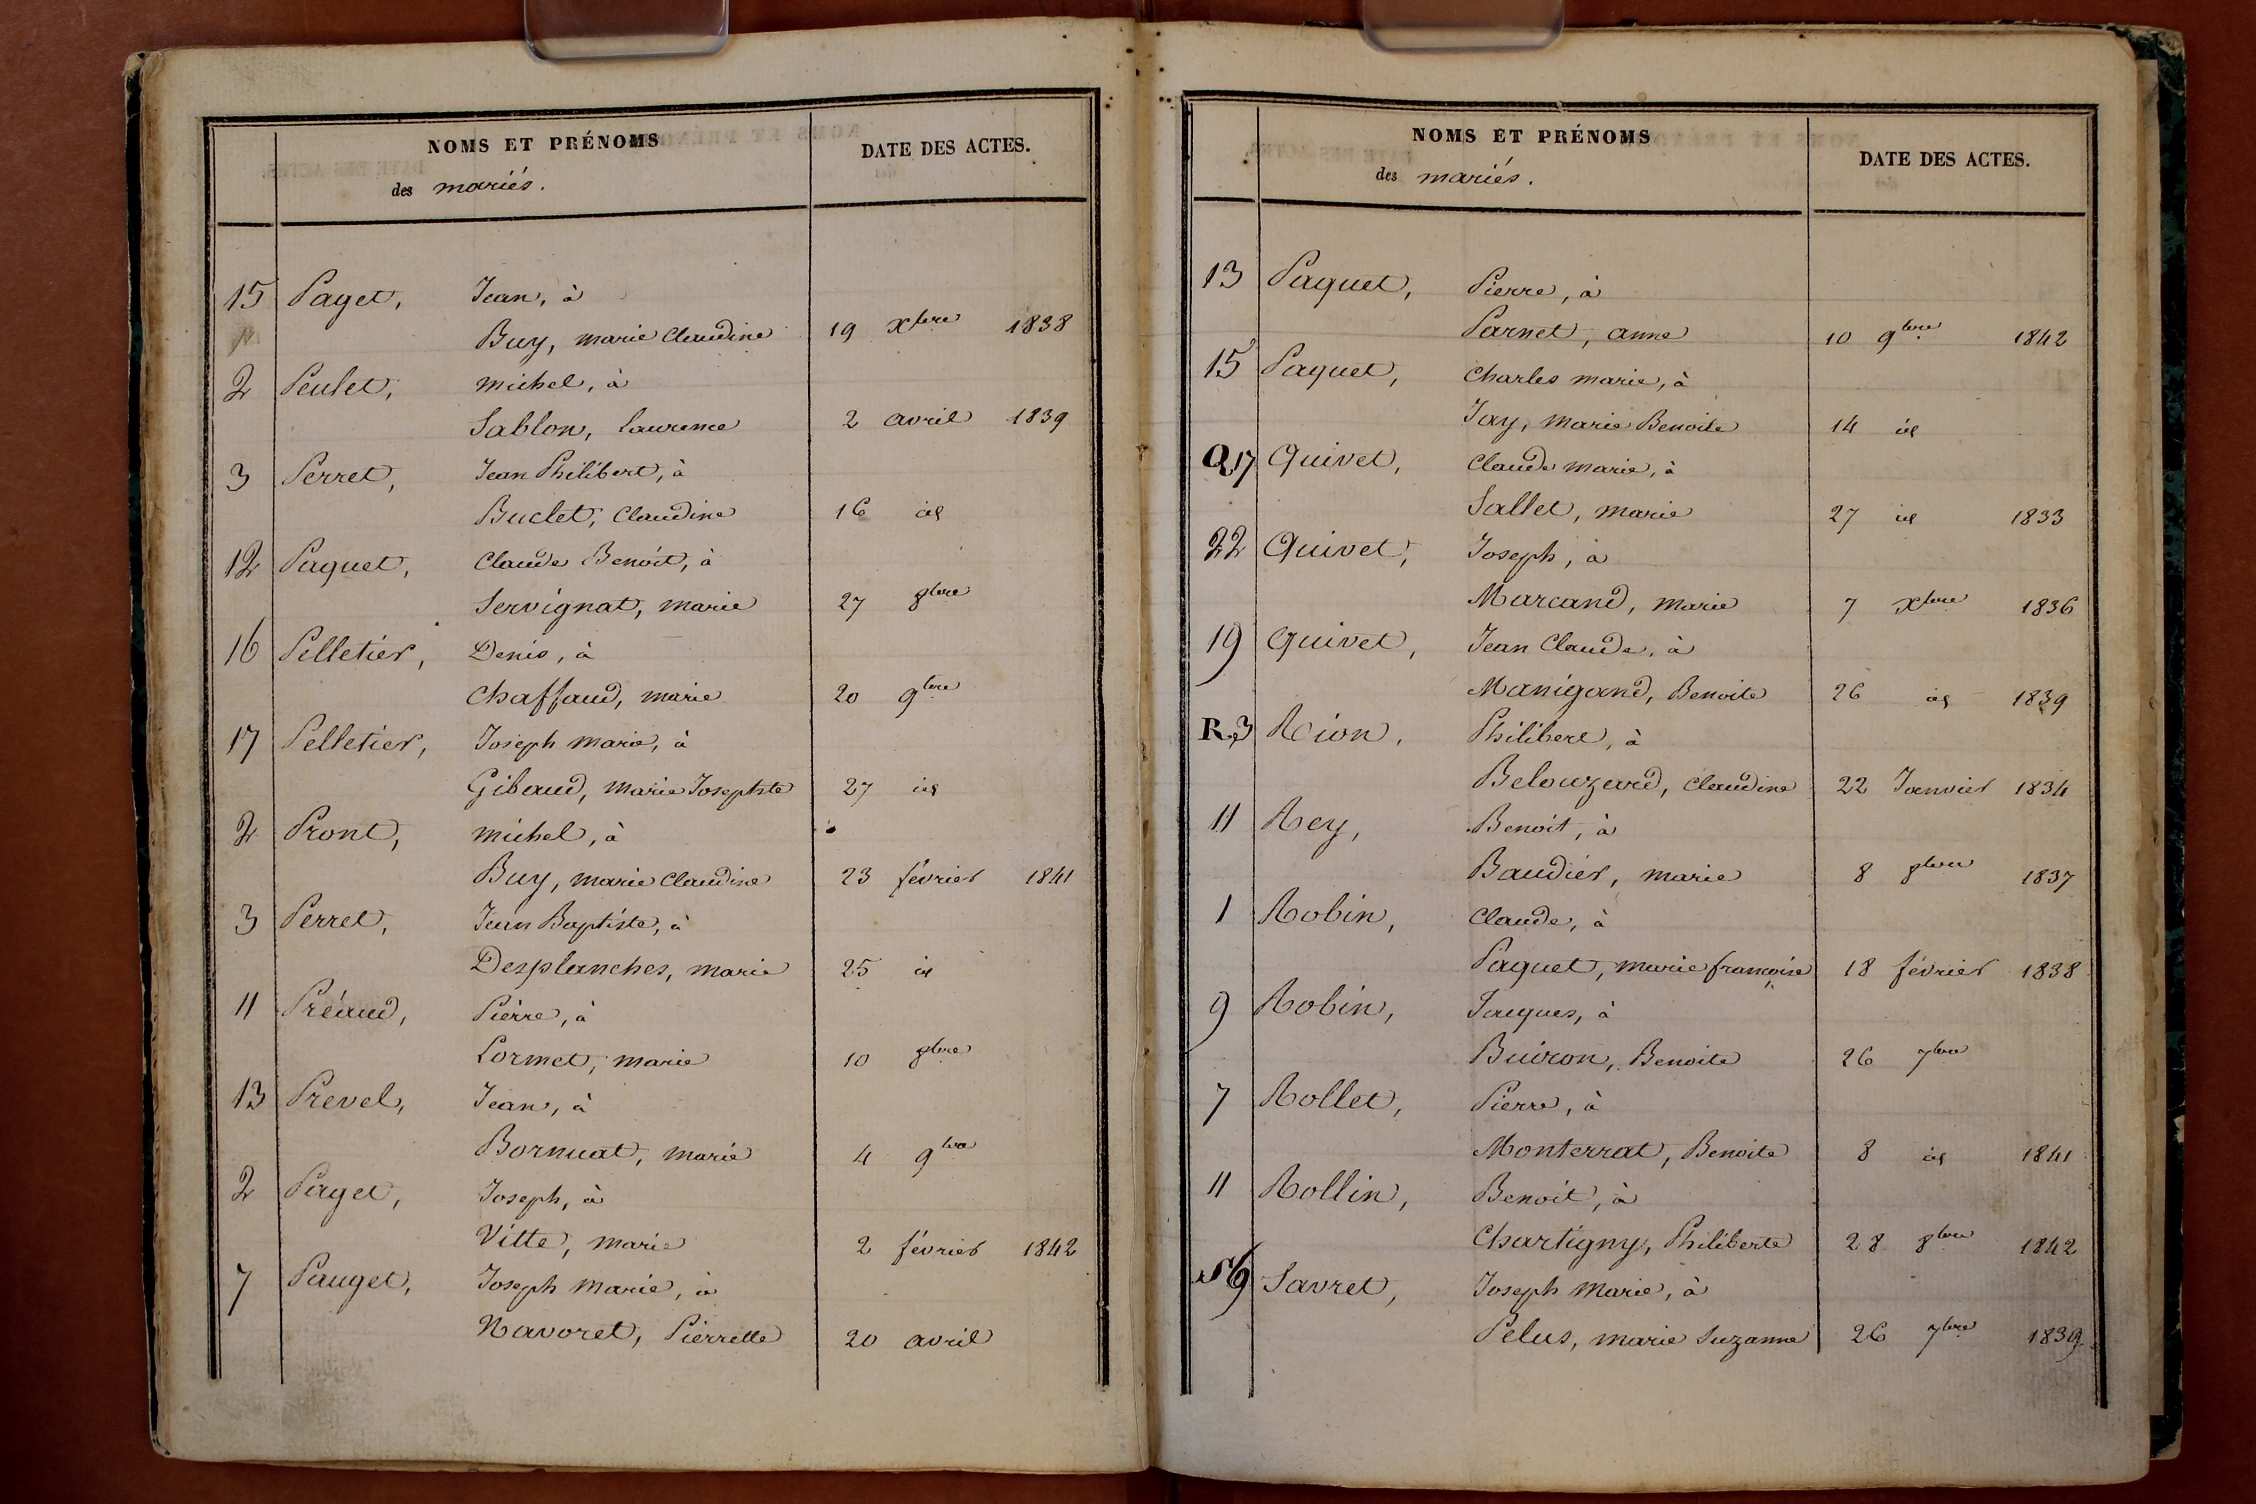 NOMS ET PRÉNOMS
des mariés.
DATE DES ACTES.
15 Paget, Jean, à
Buy, marie Claudine 19 Xbre 1838
2 Peulet, michel, à
Sablon, Laurence 2 avril 1839
3 Perret, Jean Philibert, à
Buclet, Claudine 16 id
12 Paquet, Claude Benoît, à
Servignat, marie 27 8bre
16 Pelletier, Denis, à
Chaffaud, marie 20 9bre
17 Pelletier, Joseph marie, à
Gibaud, marie Josephte 27 id
2 Pront, michel, à
Buy, marie Claudine 23 février 1841
3 Perret, Jean Baptiste, à
Desplanches, marie 25 id
11 Préaud, Pierre, à
Lormet, marie 10 8bre
13 Prevel, Jean, à
Bornuat, marie 4 9bre
2 Paget, Joseph, à
Vitte, marie 2 février 1842
7 Pauget, Joseph Marie, à
Navoret, Pierrette 20 avril
NOMS ET PRÉNOMS
des mariés.
DATE DES ACTES.
13 Paquet, Pierre, à
Parnet, anne 10 9bre 1842
15 Paquet, Charles marie, à
Jay, Marie Benoite 14 id
Q 17 Quivet, Claude marie, à
Sallet, marie 27 id 1833
22 Quivet, Joseph, à
Marcand, marie 7 Xbre 1836
19 Quivet, Jean Claude, à
Manigand, Benoite 26 id 1839
R. 3 Rion, Philibert, à
Belouzard, Claudine 22 Janvier 1834
11 Rey, Benoit, à
Baudier, marie 8 8bre 1837
1 Robin, Claude, à
Paquet, marie françoise 18 février 1838
9 Robin, Jacques, à
Buiron, Benoite 26 7bre
7 Rollet, Pierre, à
Monterrat, Benoite 8 id 1841
11 Rollin, Benoit, à
Chartigny, Philiberte 28 8bre 1842
S 9 Savret, Joseph Marie, à
Pelus, marie Suzanne 26 7bre 1839